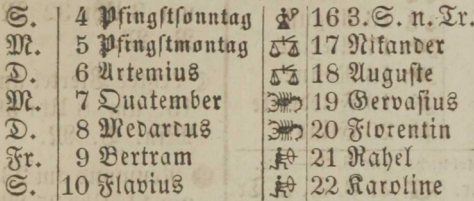 S. 4 Pfingstsonntag 16 3. S. n. Tr.
M. 5 Pfingstmontag 17 Nikander
D. 6 Artemius 18 Auguste
M. 7 Quatember 19 Gervasius
D. 8 Medardus 20 Florentin
Fr. 9 Bertram 21 Rahel
S. 10 Flavius 22 Karoline